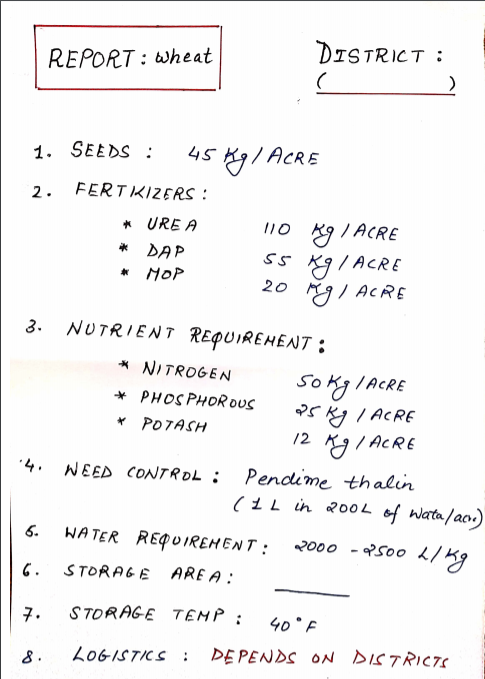 REPORT: wheat
DISTRICT :
( )
1. SEEDS : 45 Kg/ACRE
2. FERTKIZERS :
* UREA 110 Kg/ACRE
* DAP 55 Kg/ACRE
* MOP 20 Kg/ACRE
3. NUTRIENT REQUIREMENT :
* NITROGEN 50 Kg/ACRE
* PHOSPHOROUS 25 Kg/ACRE
* POTASH 12 Kg/ACRE
4. NEED CONTROL : Pendime thalin
( 1 L in 200L of Wata/acre)
5. WATER REQUIREMENT : 2000 - 2500 L/Kg
6. STORAGE AREA :
7. STORAGE TEMP : 40°F
8. LOGISTICS : DEPENDS ON DISTRICTS